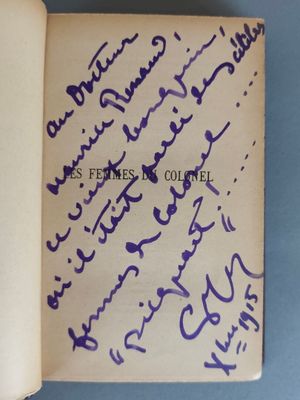 au Docteur
Maurice Renaud,
ce vieux bouquin!
où il était parlé des célèbres
femmes de Colonel......
"Picquart"!......
Xbre 1915
LES FEMMES DU COLONEL